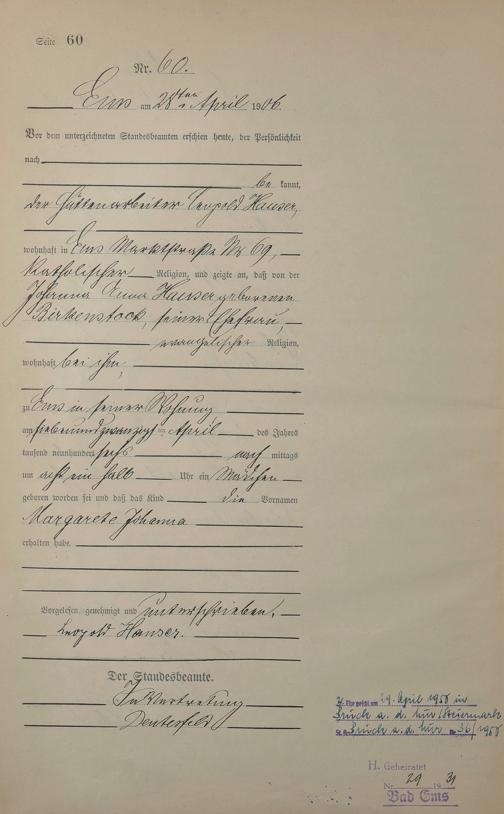 Seite 60
Nr. 60.
Ems am 28ten April 1906.
Vor dem unterzeichneten Standesbeamten erschien heute, der Persönlichkeit
nach
be kannt,
der Hüttenarbeiter Leopold Hauser,
wohnhaft in Ems Marktstraße Nr 69,
katholischer Religion, und zeigte an, daß von der
Johanna Anna Hauser geborenen
Birkenstock, seiner Ehefrau,
evangelischer Religion,
wohnhaft bei ihm,
zu Ems in seiner Wohnung
am siebenundzwanzigsten April des Jahres
tausend neunhundert sechs nach mittags
um acht ein halb Uhr ein Mädchen
geboren worden sei und daß das Kind die Vornamen
Margarete Johanna
erhalten habe.
Vorgelesen, genehmigt und unterschrieben.
Leopold Hauser.
Der Standesbeamte.
In Vertretung
29. April 1950 in
Bruck a. d. Mur/Steiermark
Bruck a. d. Mur Nr. 36/1950
H. Geheiratet
Nr. 29 1931
Bad Ems